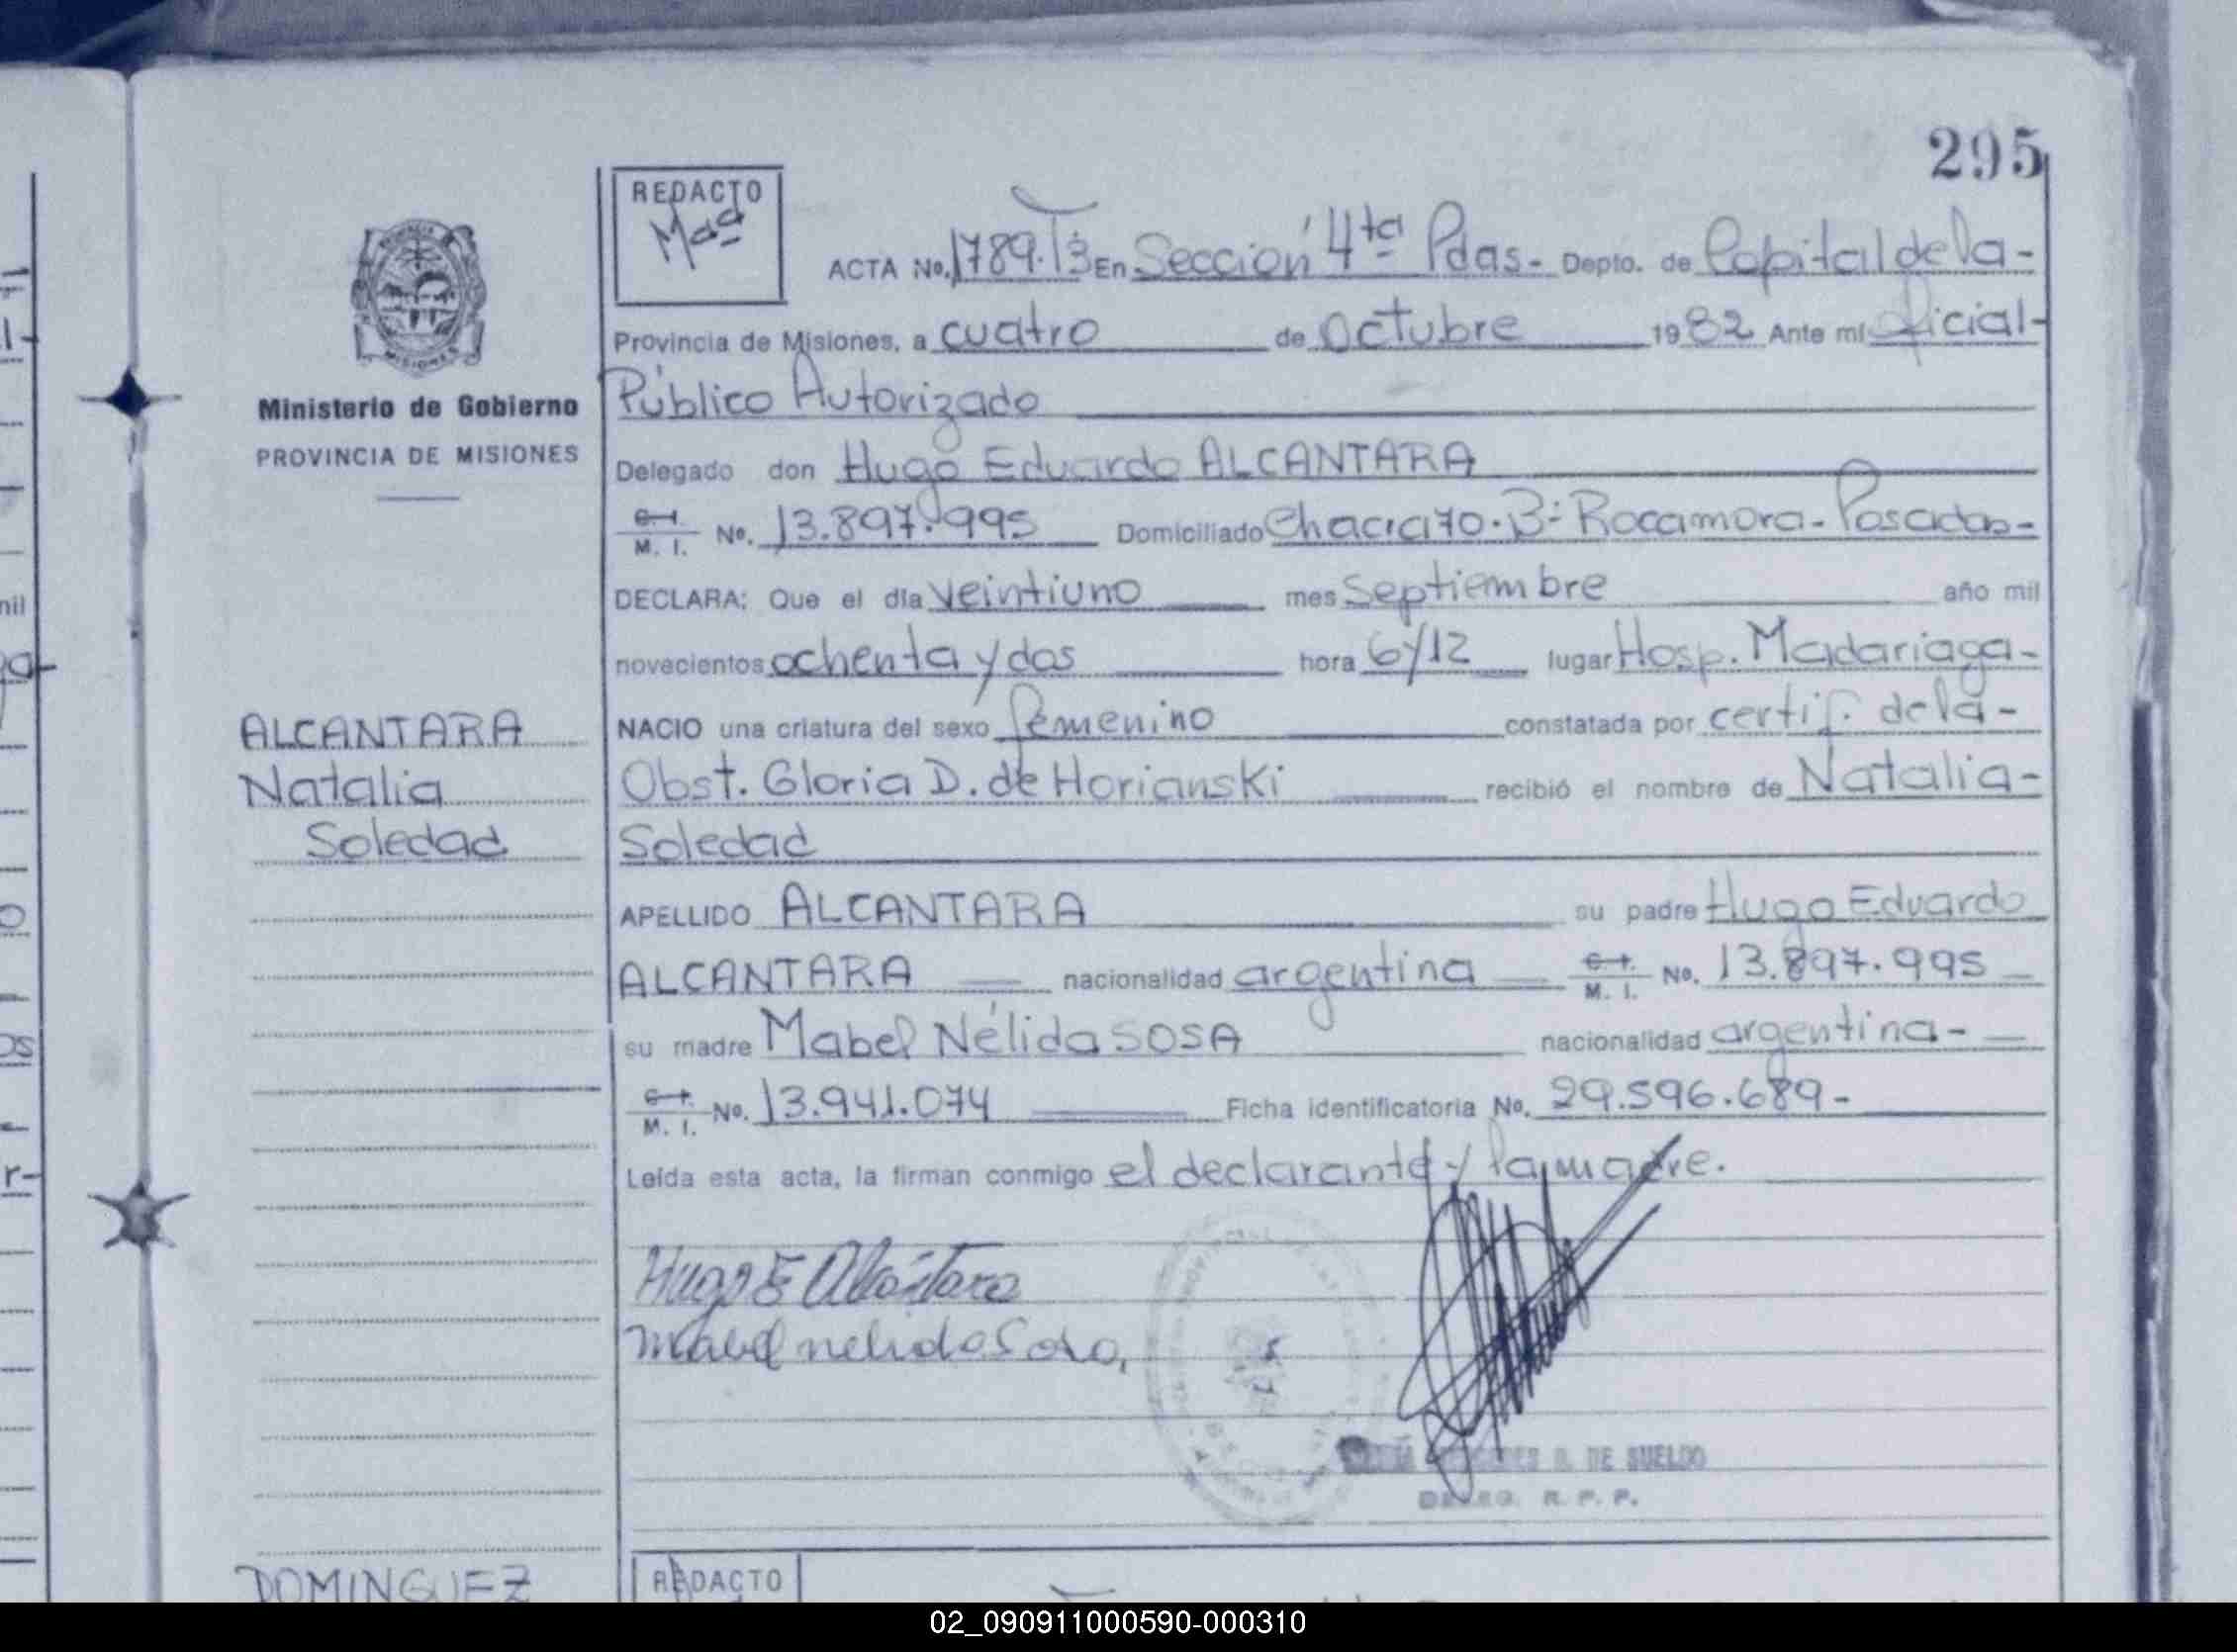 295
REDACTO
Mas
ACTA No. 1789.T3 En Sección 4ta Pdas- Depto. de Capital de la-
Provincia de Misiones, a cuatro de Octubre 1982 Ante mí Oficial-
Ministerio de Gobierno
PROVINCIA DE MISIONES
Público Autorizado
Delegado don Hugo Eduardo ALCANTARA
C.I. M. I. No. 13.897.995 Domiciliado Chacra 70. B: Rocamora- Posadas-
DECLARA: Que el día veintiuno mes Septiembre año mil
novecientos ochenta y dos hora 6y12 lugar Hosp. Madariaga-
NACIO una criatura del sexo femenino constatada por certif. de la-
Obst. Gloria D. de Horianski recibió el nombre de Natalia-
Soledad
ALCANTARA
Natalia
Soledad
APELLIDO ALCANTARA su padre Hugo Eduardo
ALCANTARA nacionalidad argentina C.I. M. I. No. 13.897.995
su madre Mabel Nélida SOSA nacionalidad argentina-
C.I. M. I. No. 13.941.074 Ficha identificatoria No. 29.596.689-
Leída esta acta, la firman conmigo el declarante y la madre.
Hugo E Alcántara
Mabel nelida Sosa,
DE SUELDO
R. P. P.
DOMINGUEZ
REDACTO
02_090911000590-000310